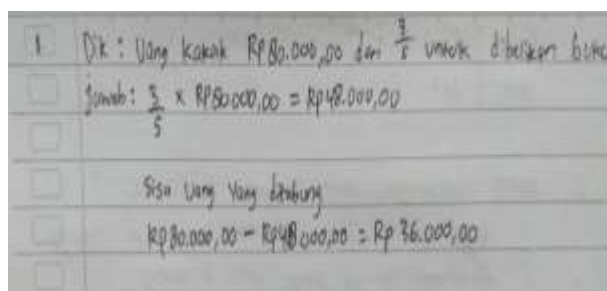 1 Dik : Uang kakak Rp80.000,00 dari 3/5 untuk dibelikan buku
Jawab : 3/5 x RP80000,00 = Rp48.000,00
Sisa uang yang ditabung
Rp80.000,00 - Rp48000,00 = Rp 36.000,00